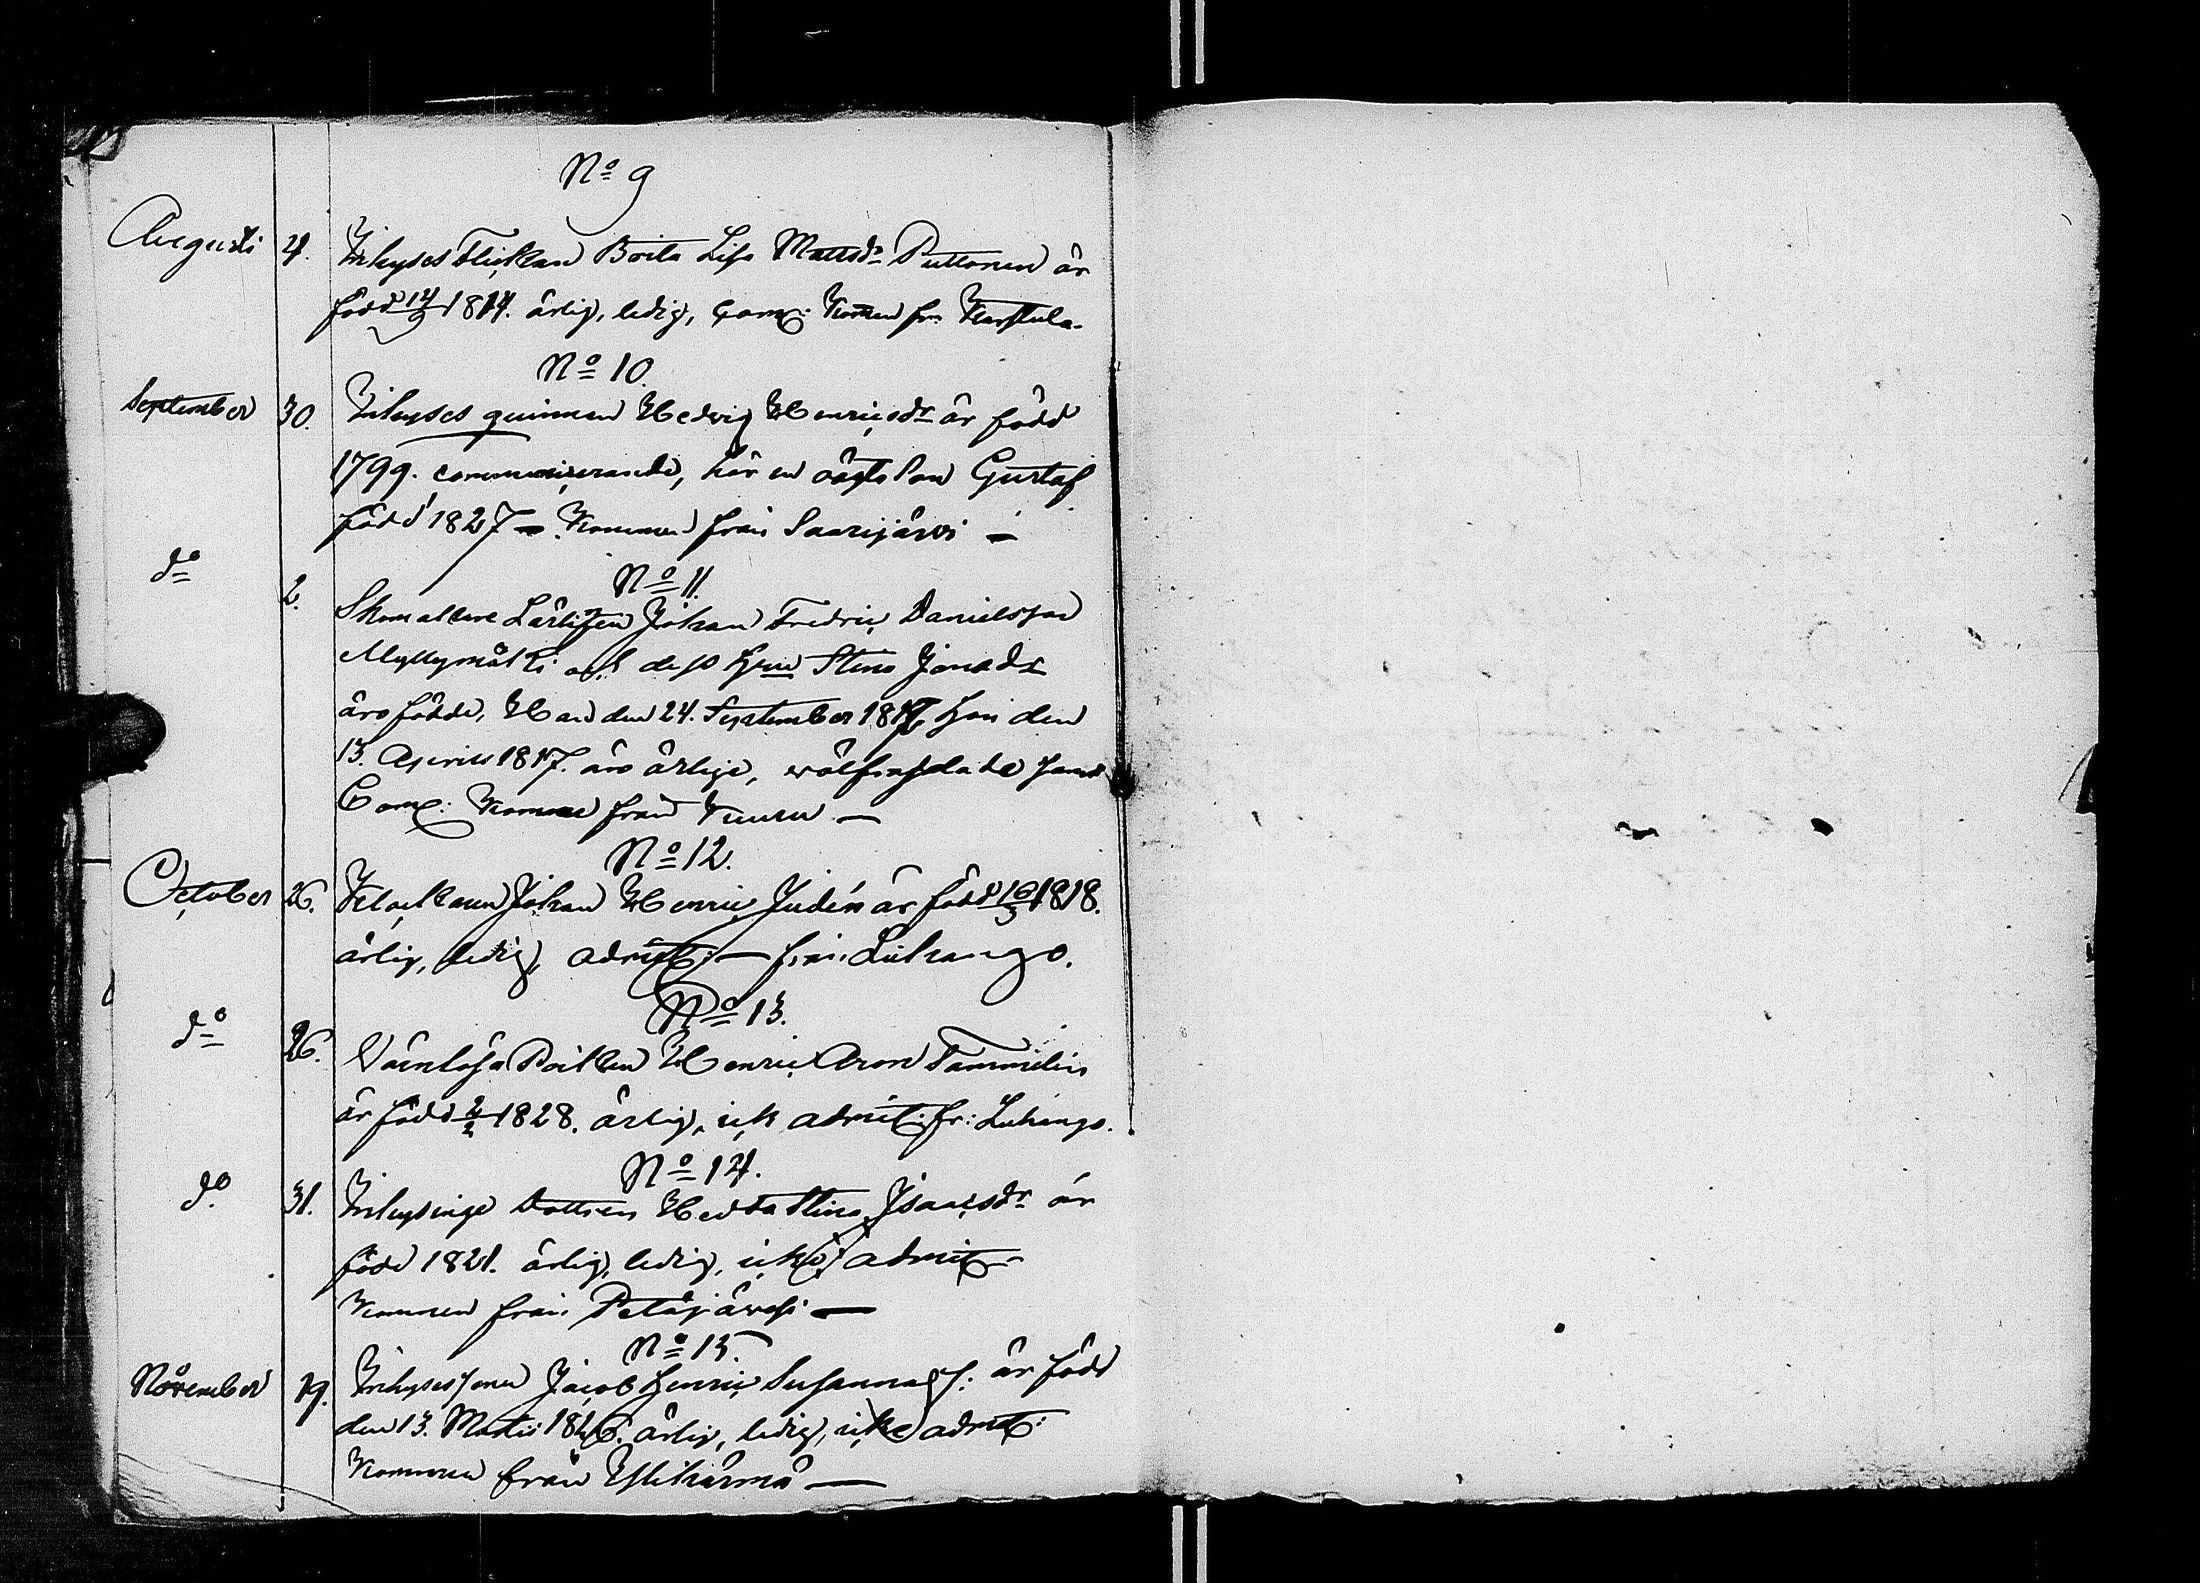 No 9
Augusti 4. Inhyses Flickan Brita Lisa Mattsdr Puttonen är
född 14/9 1814. ärlig, ledig, Com: Kommen fr. Karstula.
No 10.
September 30. Inhyses quinnan Hedvig Henricsdr är född
1799. communicerande, har en oägta Son Gustaf
född 1827 – Kommen från Saarijärvi –
No 11.
do 2. Skomakare Lärlingen Johan Fredric Danielsson
Myllymäki och dess Hru Stina Jonasdr
äro födde, Han den 24. September Hon den
13. Aprill 1817. äro ärlige, wälfrejdade samt
Com: Komne från
No 12.
October 26. Klockaren Johan Henric Judén är född 16/3 1818.
ärlig, ledig, admit: – från Luhango.
No 13.
do 26. Wärnlösa Poiken Henric Aron Tammelin
är född 2/2 1828. ärlig, ick admit: fr: Luhango.
No 14.
do. 31. Inhysinge Dottren Hedda Stina Isaacsdr är
född 1821. ärlig, ledig, icke admit
Kommen från Petäjävesi –
No 15.
November 19. Inhyses sonen Jacob Henric Susannas S: är född
den 13. Martii ärlig, ledig, icke admit:
Kommen från Ylihärmä –